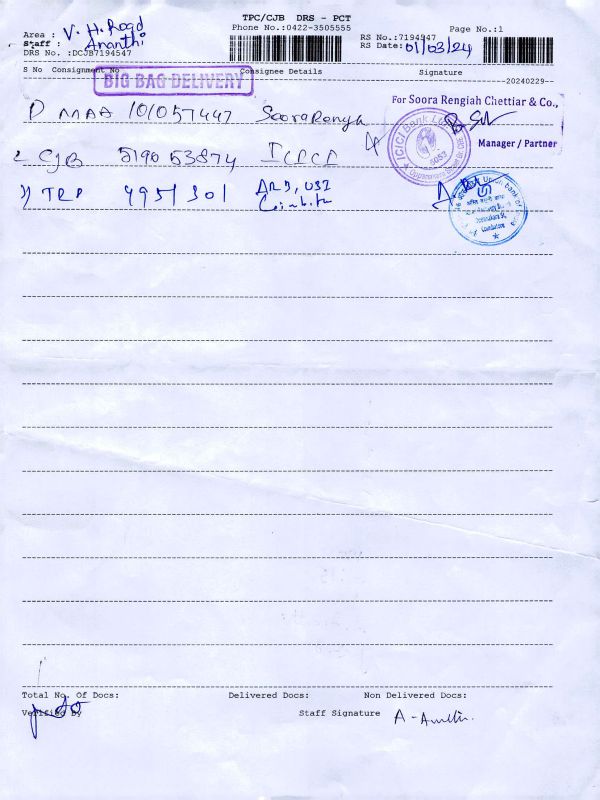 TPC/CJB DRS - PCT
Phone No.:0422-3505555
Page No.:1
Area : V. H. Road
RS No.:7194547
Staff : Ananthi
RS Date: 01/03/24
DRS No. :DCJB7194547
S No Consignment No Consignee Details Signature
20240229
BIG BAG DELIVERY
For Soora Rengiah Chettiar & Co.,
1) MAA 101057447
Manager / Partner
ICICI Bank
2 CJB 519053874 ICICI
3) TRP 4951301
Total No. Of Docs: Delivered Docs: Non Delivered Docs:
Verified By Staff Signature